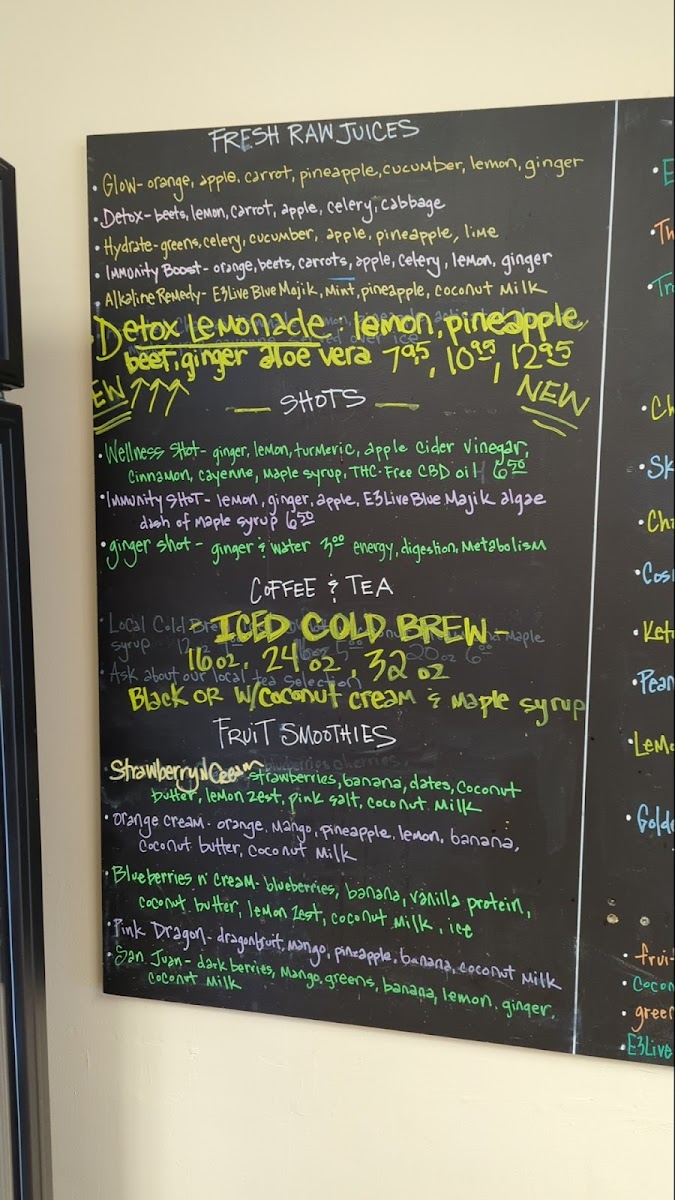 FRESH RAW JUICES
• Glow - orange, apple, carrot, pineapple, cucumber, lemon, ginger
• Detox - beets, lemon, carrot, apple, celery, cabbage
• Hydrate - greens, celery, cucumber, apple, pineapple, lime
• Immunity Boost - orange, beets, carrots, apple, celery, lemon, ginger
• Alkaline Remedy - E3Live Blue Majik, Mint, pineapple, coconut milk
Detox Lemonade: lemon, pineapple,
beet, ginger aloe vera 7.95, 10.95, 12.95
EW ↑↑↑ NEW
SHOTS
• Wellness Shot - ginger, lemon, turmeric, apple cider vinegar,
cinnamon, cayenne, maple syrup, THC-Free CBD oil 6.50
• Immunity Shot - lemon, ginger, apple, E3Live Blue Majik algae
dash of maple syrup 6.50
• ginger shot - ginger & water 3.00 energy, digestion, metabolism
COFFEE & TEA
• Local Cold Bre
Maple
syrup
ICED COLD BREW -
16 oz, 24 oz, 32 oz
• Ask about our local tea selection
Black OR w/coconut cream & maple syrup
FRUIT SMOOTHIES
Strawberry n Cream strawberries, banana, dates, coconut
butter, lemon zest, pink salt, coconut milk
• Orange cream - orange, mango, pineapple, lemon, banana,
coconut butter, coconut milk
• Blueberries n' cream - blueberries, banana, vanilla protein,
coconut butter, lemon zest, coconut milk, ice
• Pink Dragon - dragonfruit, mango, pineapple, banana, coconut milk
• San Juan - dark berries, mango, greens, banana, lemon, ginger,
coconut milk
• E
• Th
• Tr
• Ch
• Sk
• Cha
• Cosi
• Ket
• Pean
• Lemo
• Golde
• frui
• Cocon
• green
• E3Live